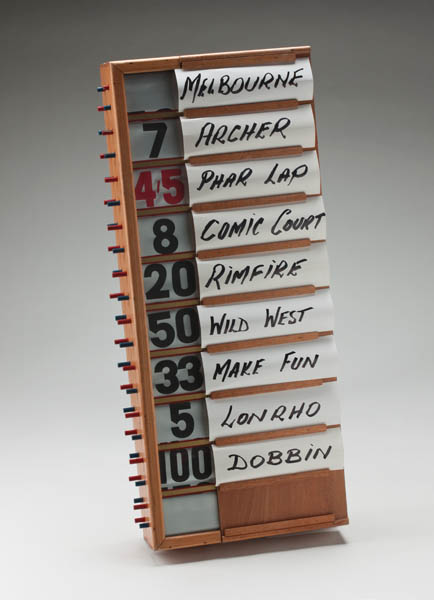 MELBOURNE
7 ARCHER
4/5 PHAR LAP
8 COMIC COURT
20 RIMFIRE
50 WILD WEST
33 MAKE FUN
5 LONRHO
100 DOBBIN